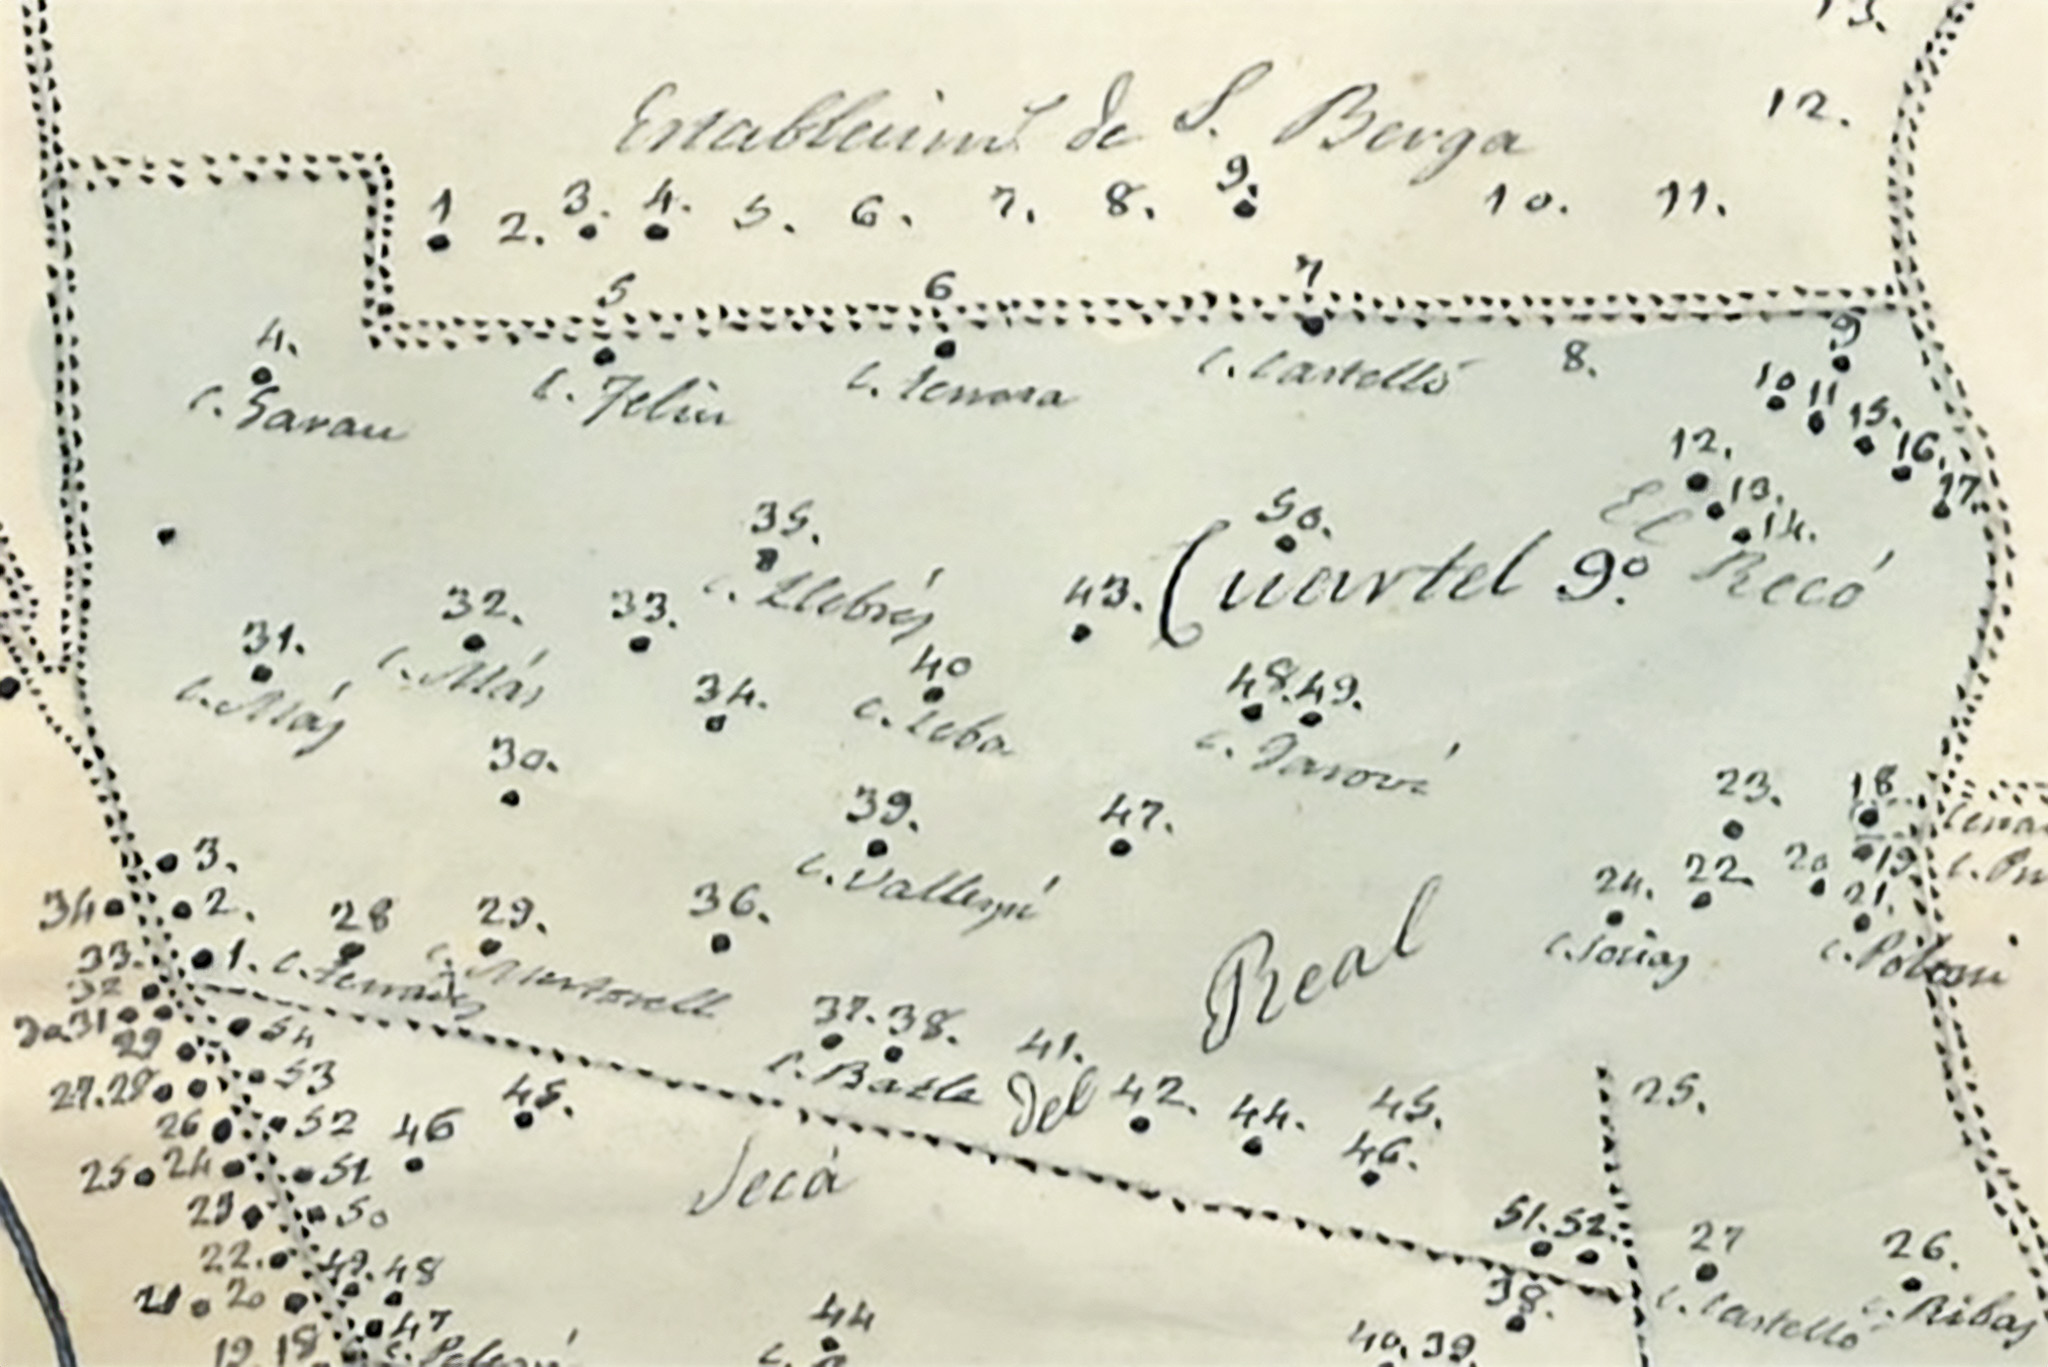 13.
12.
Establecim.t de S. Berga
1 2. 3. 4. 5. 6. 7. 8. 9. 10. 11.
5 6 7
4. 8. 9
C. Garau C. Feliu C. Terrasa C. Castelló
10 11 15. 16. 17.
12. 13. 14.
El Recó
35. 50.
C. Llebrés
Cuartel 9.º
31. 32. 33. 43.
C. Más C. Más
34. 40 48. 49.
30.
39. 47. 23. 18
C. Vallespí
3. 24. 22. 20 19
34 2. 28 29. 36. 21.
33. 1. C. Martorell
Real
32
30 31 54 37. 38. 41.
29 53 C. Batle del 42. 44. 45. 25.
27. 28 46.
26 52 46 45.
25 24 51 Secá
23 50 51. 52. 27 26.
22. 49. 48 38. C. Castelló C. Ribas
21 20 47 44
19 18 40. 39.